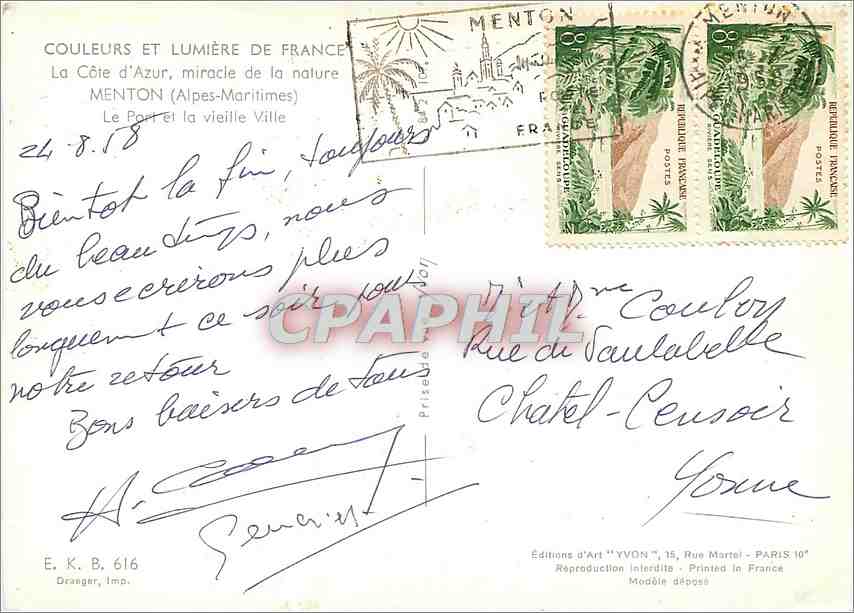 COULEURS ET LUMIÈRE DE FRANCE
La Côte d'Azur, miracle de la nature
MENTON (Alpes-Maritimes)
Le Port et la vieille Ville
24.8.58
Bientot la fin, toujours
du beau temps, nous
vous ecrirons plus
longuement ce soir pour
notre retour
Bons baisers de tous
E. K. B. 616
Draeger, Imp.
Prise de vue Yvon
MENTON
FRANCE
8F
RÉPUBLIQUE FRANÇAISE
POSTES
GUADELOUPE
RIVIÈRE SENS
8F
RÉPUBLIQUE FRANÇAISE
POSTES
GUADELOUPE
RIVIÈRE SENS
MENTON
CPAPHIL
Mr et Mme Coulon
Rue de Vaulabelle
Chatel-Censoir
Yonne
Éditions d'Art "YVON", 15, Rue Martel - PARIS 10e
Reproduction interdite - Printed in France
Modèle déposé